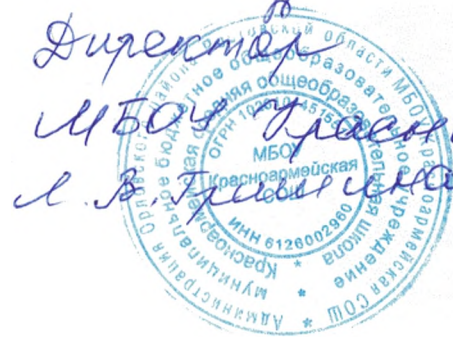 Директор
МБОУ Красн
Л. В. Гринина
Администрация Орловского района Ростовской области МБОУ Красноармейская СОШ *
муниципальное бюджетное общеобразовательное учреждение *
Красноармейская средняя общеобразовательная школа *
ОГРН
ИНН 6126002960
МБОУ
Красноармейская
СОШ